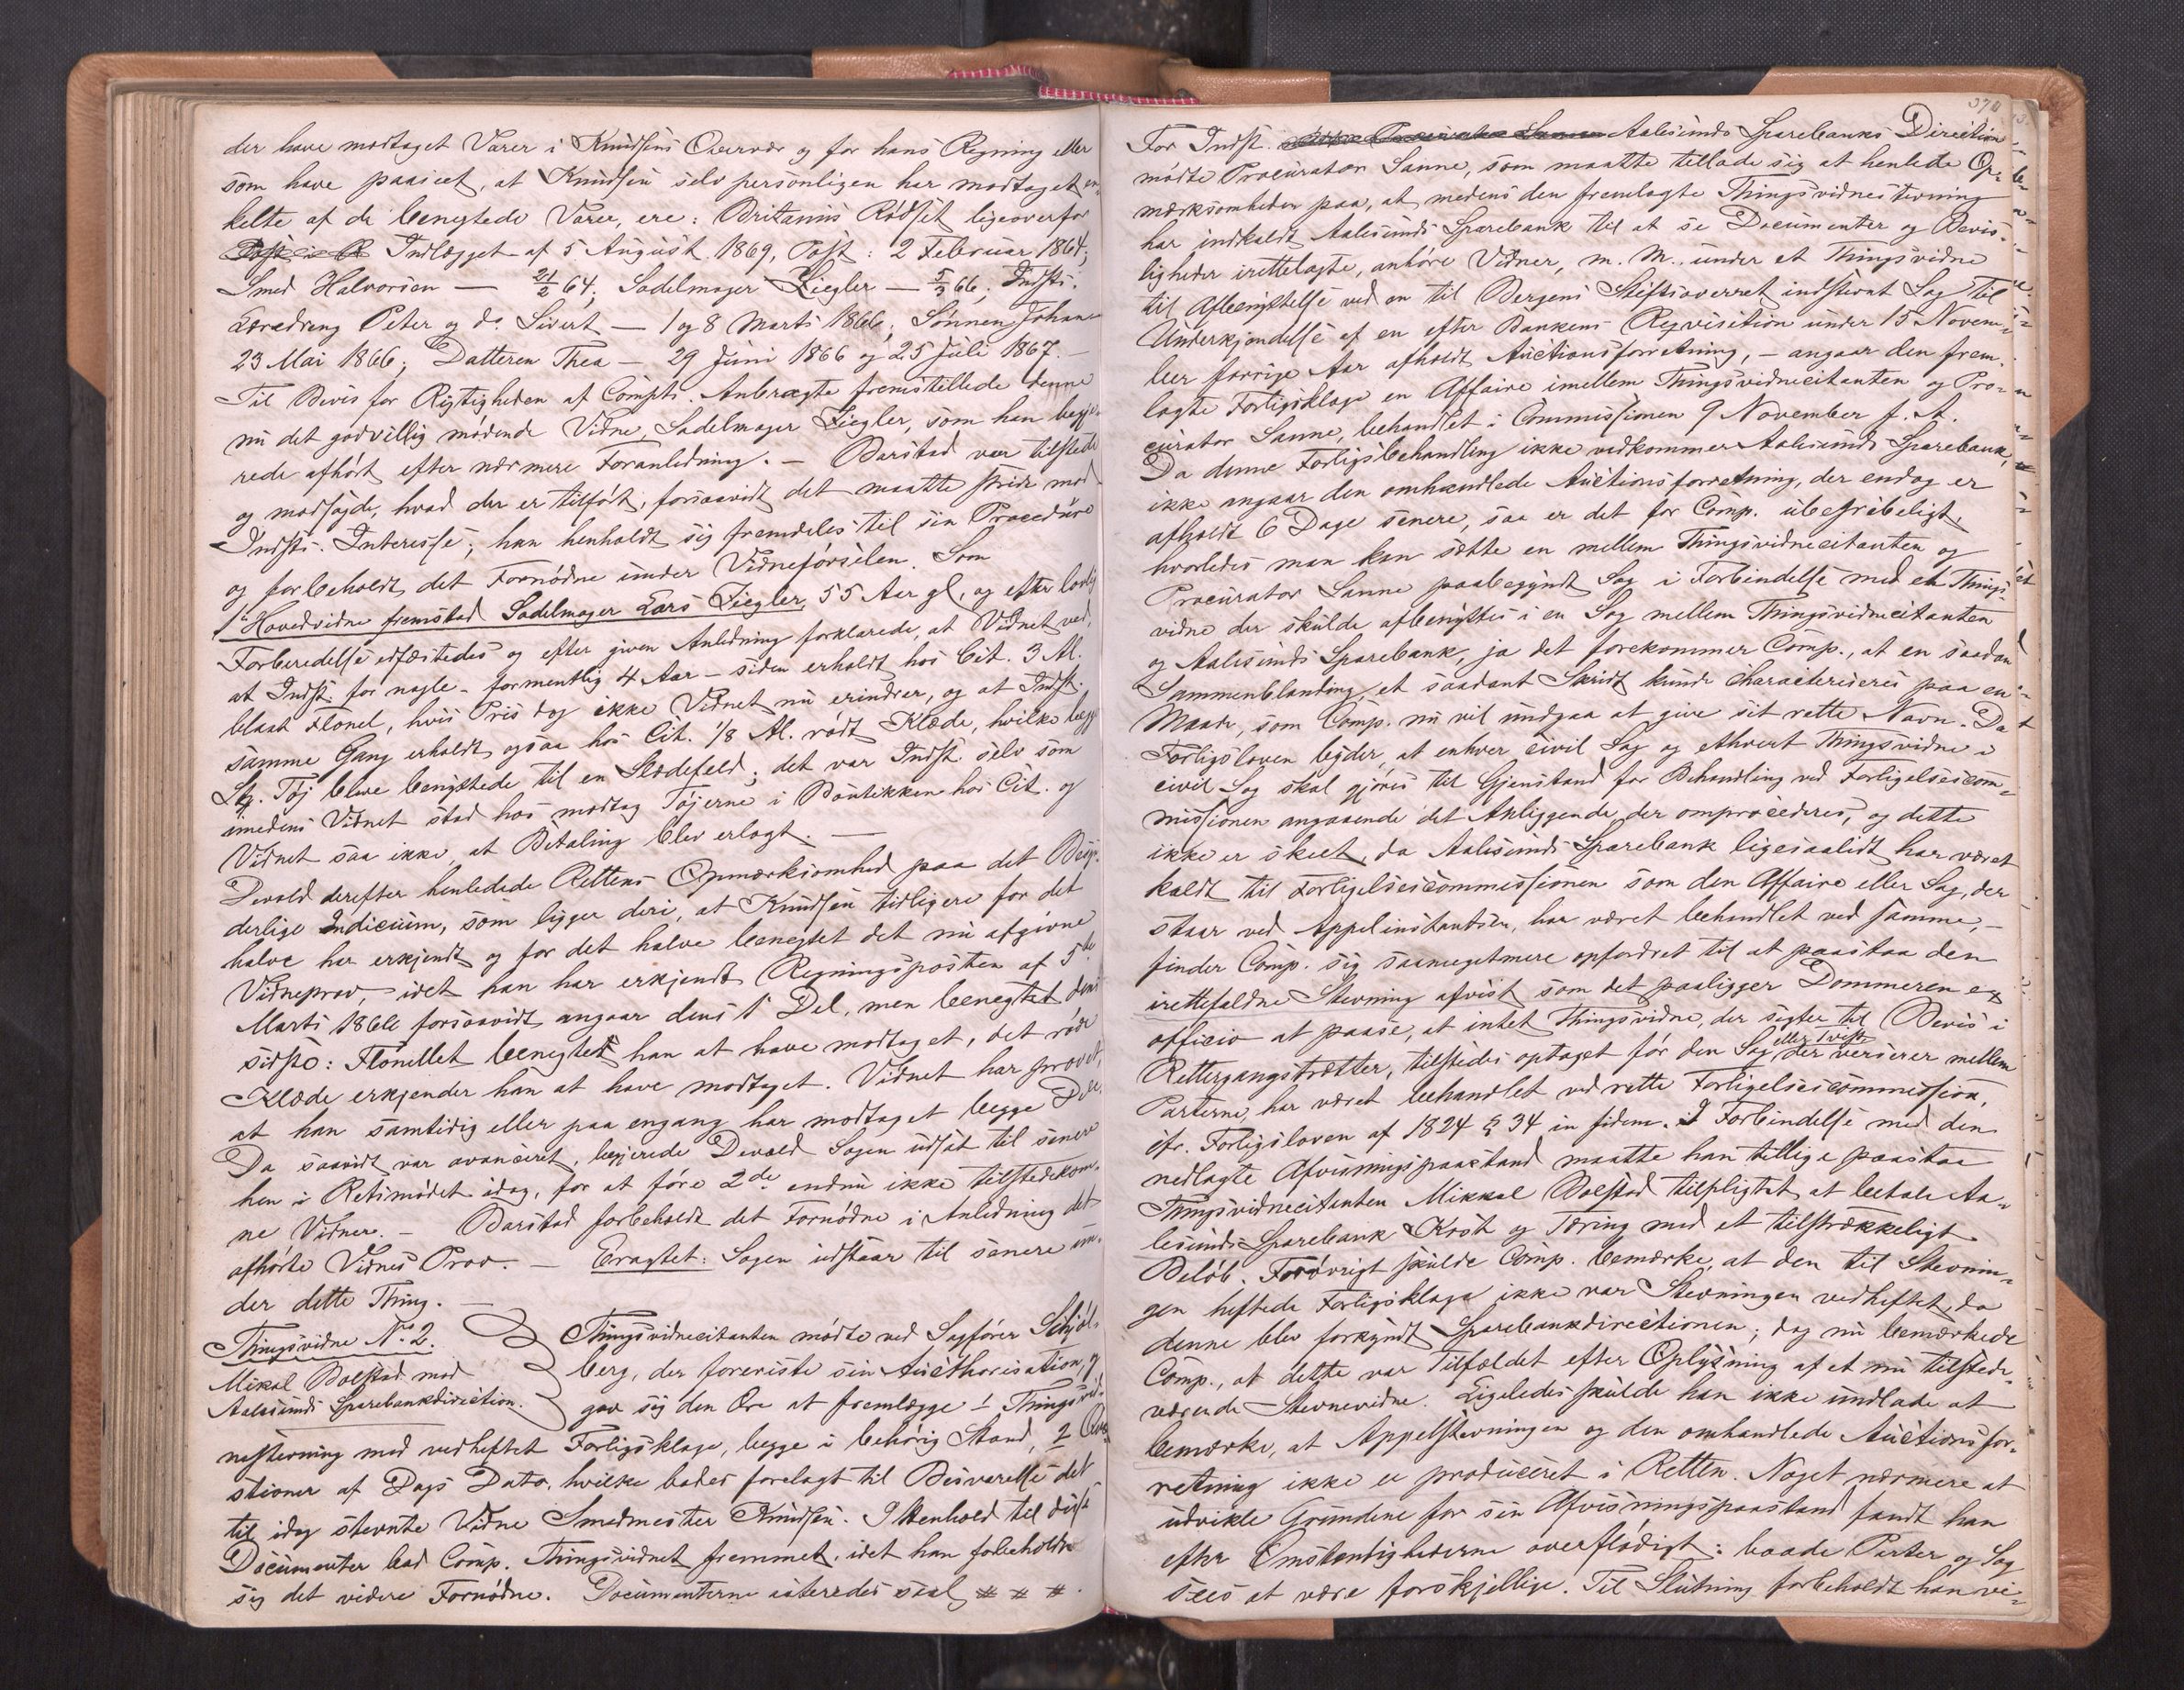 der have modtaget Varer i Knudsens Overvær og for hans Regning eller
som have paaseet, at Knudsen selv personligen har modtaget en-
kelte af de benegtede Varer, ere: Britanus Rødset ligeoverfor
Indlægget af 5 August 1869, Post: 2 Februar 1864;
Smed Halvorsen — 21/2 64; Sadelmager Ziegler — 5/3 66; Indst.
Læredreng Peter og do. Sivert — 1 og 8 Marts 1866; Sønnen Johan
23 Mai 1866; Datteren Thea — 29 Juni 1866 og 25 Juli 1867. —
Til Bevis for Rigtigheden af Compts. Anbragte fremstillede denne
nu det godvillig mødende Vidne, Sadelmager Ziegler, som han begjæ-
rede afhørt efter nærmere Foranledning. — Barstad var tilstede
og modsagde, hvad der er tilført, forsaavidt det maatte stride mod
Indsts. Interesse; han henholdt sig fremdeles til sin Procedure
og forbeholdt det Fornødne under Vidneførselen. Som
1ste Hovedvidne fremstod Sadelmager Lars Ziegler, 55 Aar gl., og efter lovlig
Forberedelse edfæstedes og efter given Anledning forklarede, at Vidnet ved,
at Indst. for nogle – formentlig 4 Aar – siden erholdt hos Cit. 3 Al.
blaat Flonel, hvis Pris dog ikke Vidnet nu erindrer, og at Indst.
samme Gang erholdt ogsaa hos Cit. 1/8 Al. rødt Klæde, hvilke begge
Slg. Tøj bleve benyttede til en Slædefeld; det var Indst. selv som
imedens Vidnet stod hos modtog Tøjerne i Boutikken hos Cit. og
Vidnet saa ikke, at Betaling blev erlagt. —
Devold derefter henledede Rettens Opmærksomhed paa det Besyn-
derlige Indicium, som ligger deri, at Knudsen tidligere for det
halve har erkjendt og for det halve benegtet det nu afgivne
Vidneprov, idet han har erkjendt Regningsposten af 5te
Marts 1866 forsaavidt angaar dens 1ste Del, men benegtet dens
sidste: Flonellet benegtet han at have modtaget, det røde
Klæde erkjender han at have modtaget. Vidnet har provet,
at han samtidig eller paa engang har modtaget begge Dele.
Da saavidt var avanceret, begjerede Devold Sagen udsat til senere
hen i Retsmødet idag, for at føre 2de endnu ikke tilstedekom-
ne Vidner. — Barstad forbeholdt det Fornødne i Anledning det
afhørte Vidnes Prov. — Eragtet: Sagen udstaar til senere un-
der dette Thing. —
Thingsvidne No. 2.
Mikal Bolstad mod
Aalesunds Sparebankdirection.
Thingsvidnecitanten mødte ved Sagfører Schjøl-
berg, der foreviste sin Aucthorisation, og
gav sig den Ære at fremlægge 1 Thingsvid-
nestevning med vedheftet Forligsklage, begge i behørig Stand, 2 Qvæ-
stioner af Dags Dato, hvilke bades forelagt til Besvarelse det
til idag stevnte Vidne Smedmester Knudsen. I Henhold til disse
Documenter bad Comp. Thingsvidnet fremmet, idet han forbeholdte
sig det videre Fornødne. Documenterne isteredes saal. # # #.
370
For Indst. Aalesunds Sparebanks Direction
mødte Procurator Sanne, som maatte tillade sig at henlede Op-
mærksomheden paa, at medens den fremlagte Thingsvidnestevning
har indkaldt Aalesunds Sparebank til at se Documenter og Bevis-
ligheder irettelagte, anhøre Vidner, m. M. under et Thingsvidne
til Afbenyttelse ved en til Bergens Stiftsoverret indstevnt Sag til
Underkjendelse af en efter Bankens Reqvisition under 15 Novem-
ber forrige Aar afholdt Auctionsforretning, – angaar den frem-
lagte Forligsklage en Affaire imellem Thingsvidnecitanten og Pro-
curator Sanne, behandlet i Commissionen 9 November f. A.
Da denne Forligsbehandling ikke vedkommer Aalesunds Sparebank,
ikke angaar den omhandlede Auctionsforretning, der endog er
afholdt 6 Dage senere, saa er det for Comp. ubegribeligt,
hvorledes man kan sætte en mellem Thingsvidnecitanten og
Procurator Sanne paabegyndt Sag i Forbindelse med et Things-
vidne der skulde afbenyttes i en Sag mellem Thingsvidnecitanten
og Aalesunds Sparebank, ja det forekommer Comp., at en saadan
Sammenblanding, et saadant Skridt kunde characteriseres paa en
Maade, som Comp. nu vil undgaa at give sit rette Navn. Da
Forligsloven byder, at enhver civil Sag og ethvert Thingsvidne i
civil Sag skal gjøres til Gjenstand for Behandling ved Forligelsescom-
missionen angaaende det Anliggende, der omprocederes, og dette
ikke er skeet, da Aalesunds Sparebank ligesaalidt har været
kaldt til Forligelsescommissionen som den Affaire eller Sag, der
staar ved Appelinstantsen, har været behandlet ved samme, –
finder Comp. sig saameget mere opfordret til at paastaa den
irettefaldne Stevning afvist, som det paaligger Dommeren ex
officio at paase, at intet Thingsvidne, der sigter til Bevis i
Rettergangstrætter, tilstedes optaget før den Sag eller Tvist der verserer mellem
Parterne, har været behandlet ved rette Forligelsescommission,
cfr. Forligsloven af 1824 § 34 in fidem. I Forbindelse med den
nedlagte Afvisningspaastand maatte han tillige paastaa
Thingsvidnecitanten Mikkal Bolstad tilpligtet at betale Aa-
lesunds Sparebank Kost og Tæring med et tilstrækkeligt
Beløb. Forøvrigt skulde Comp. bemærke, at den til Stevnin-
gen heftede Forligsklage ikke var Stevningen vedheftet, da
denne blev forkyndt Sparebankdirectionen; dog nu bemærkede
Comp., at dette var Tilfældet efter Oplysning af et nu tilstede-
værende Stevnevidne. Ligeledes skulde han ikke undlade at
bemærke, at Appelstevningen og den omhandlede Auctionsfor-
retning ikke er produceret i Retten. Noget nærmere at
udvikle Grundene for sin Afvisningspaastand fandt han
efter Omstændighederne overflødigt: baade Parter og Sag
sees at være forskjellige. Til Slutning forbeholdt han vi-